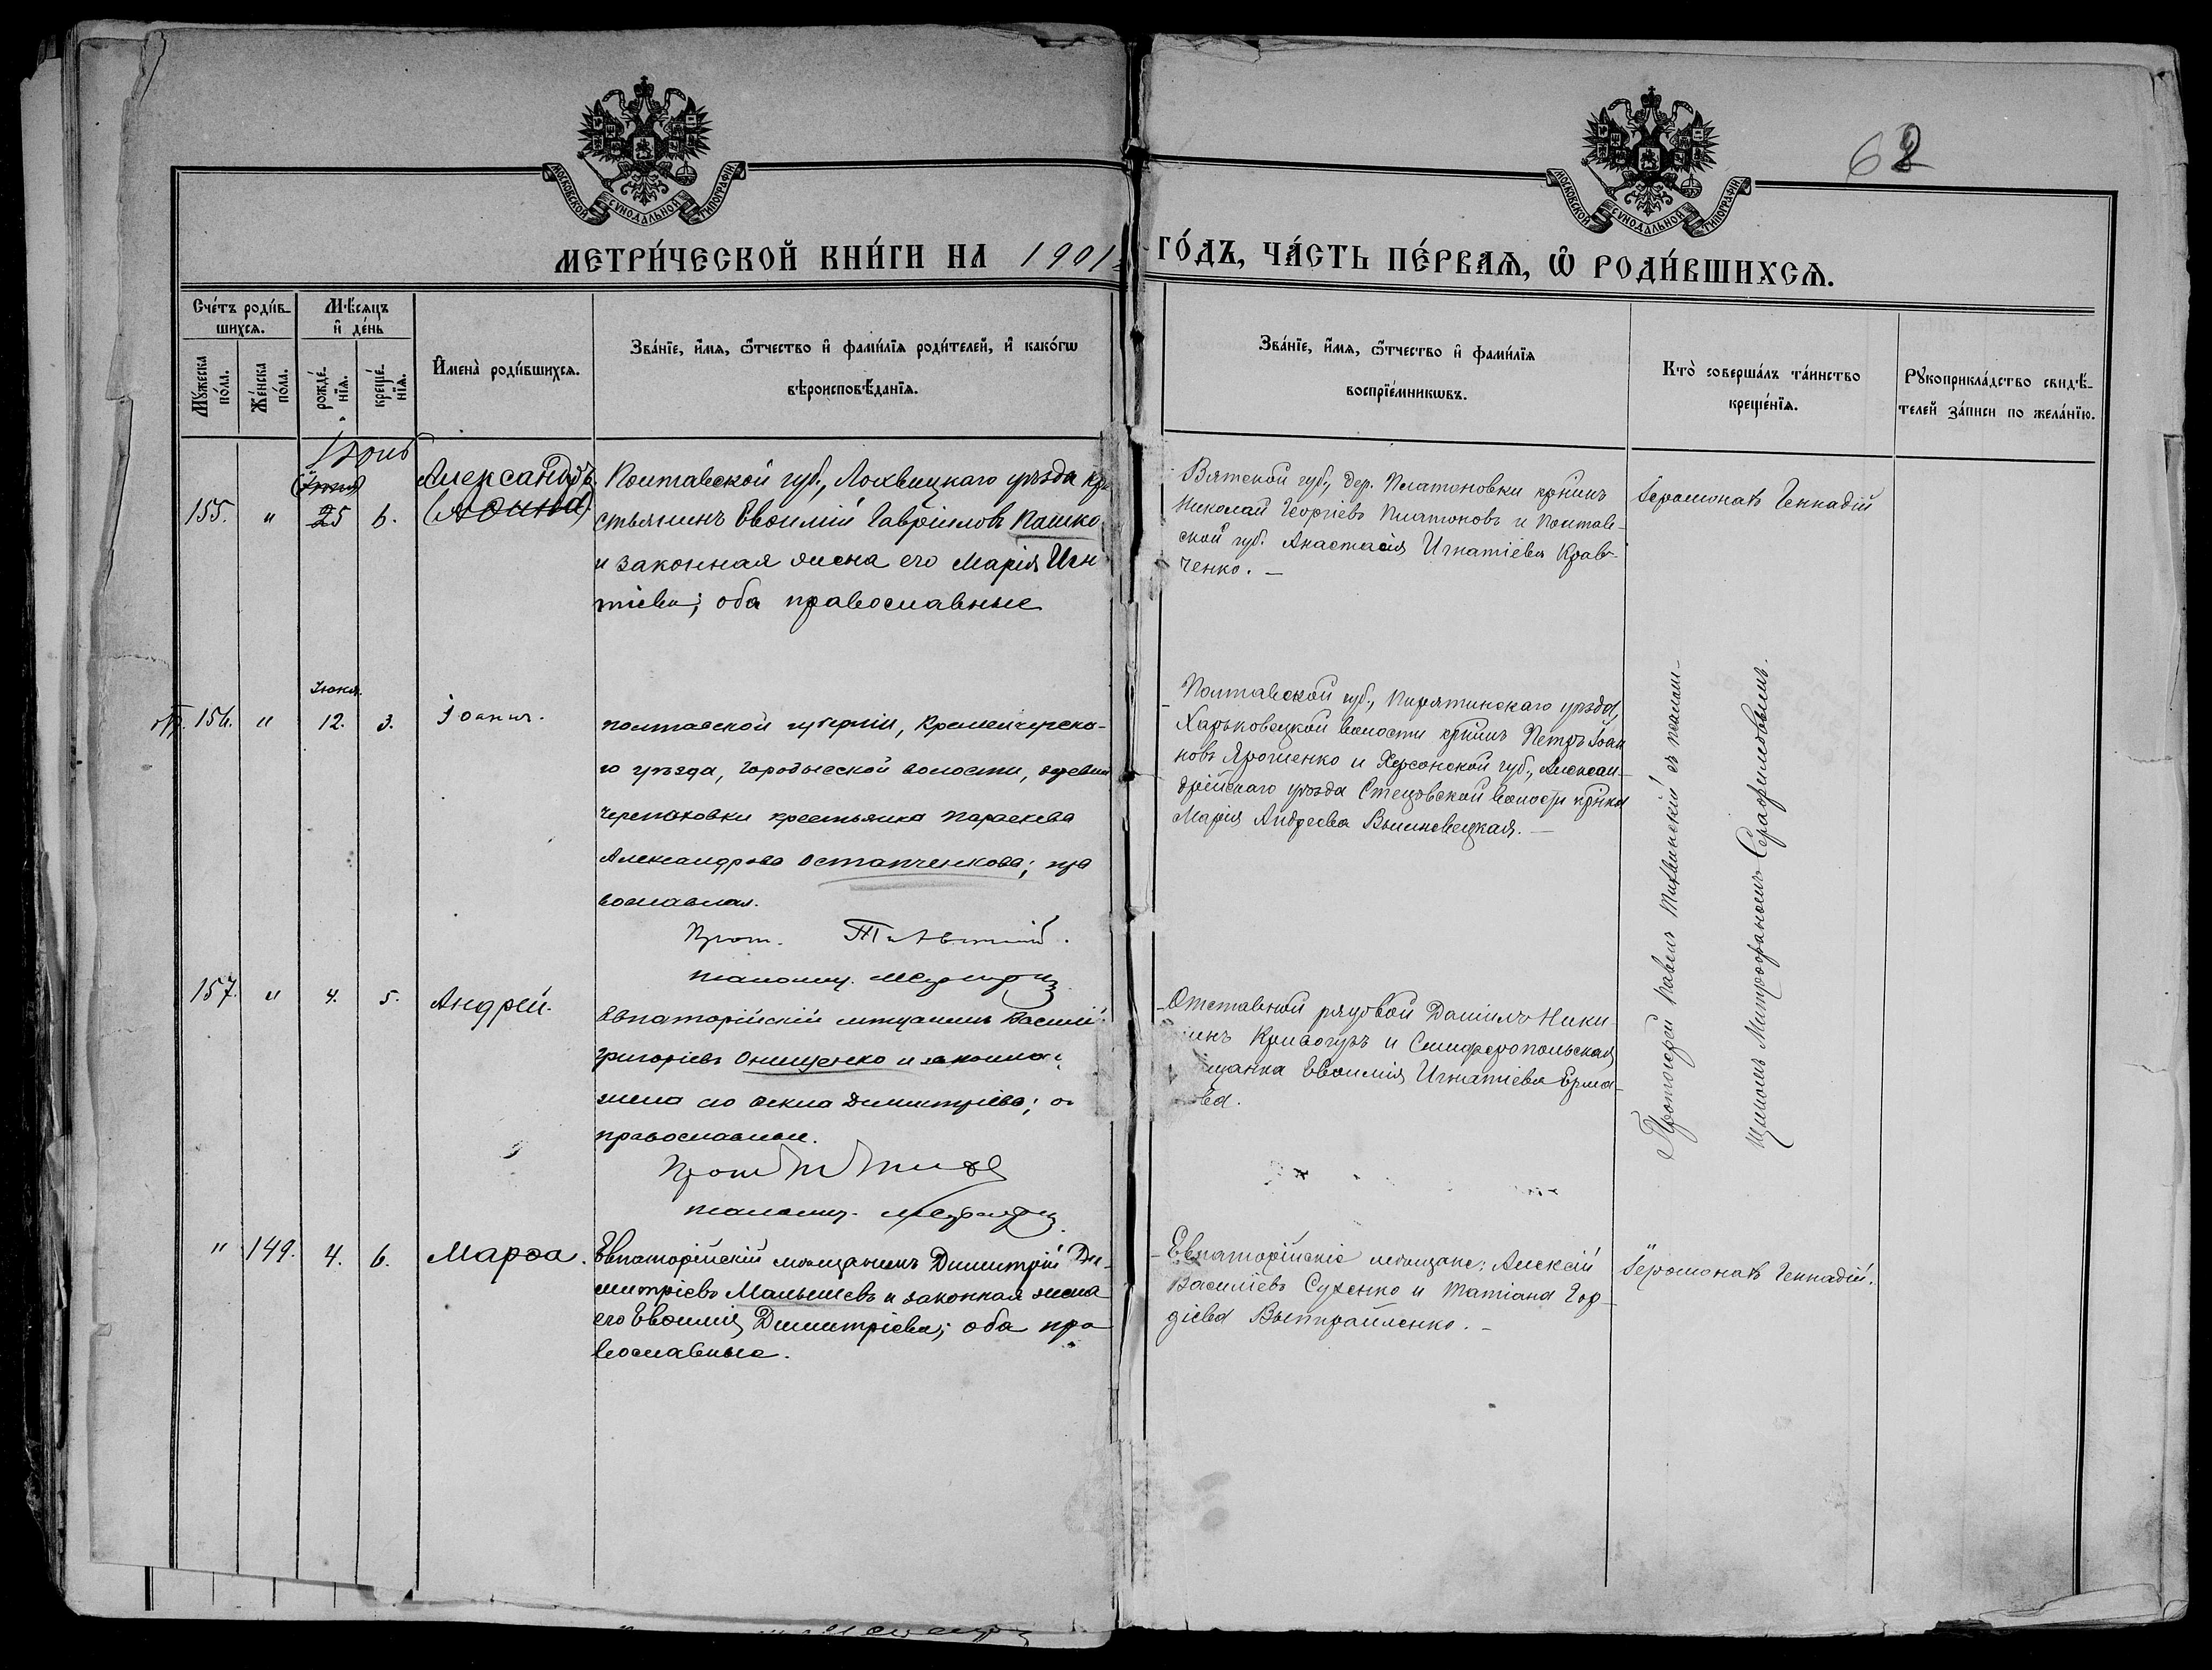 МОСКОВСКОЙ СУНОДАЛЬНОЙ ТИПОГРАФІИ
МОСКОВСКОЙ СУНОДАЛЬНОЙ ТИПОГРАФІИ
62
МЕТРИ́ЧЕСКОЙ КНИ́ГИ НА 1901
ГО́ДЪ, ЧА́СТЬ ПЕ́РВАѦ, Ѡ РОДИ́ВШИХСѦ.
Сче́тъ роди́в-
шихсѧ.
Мѣ́сѧцъ
и де́нь
Мꙋ́жеска
по́ла.
Же́нска
по́ла.
рожде́-
нїѧ.
креще́-
нїѧ.
И҆мена̀ роди́вшихсѧ.
Зва́нїе, и҆́мѧ, ѻ҆́тчество и҆ фами́лїѧ роди́телей, и҆ како́гѡ
вѣроисповѣ́данїѧ.
Зва́нїе, и҆́мѧ, ѻ҆́тчество и҆ фами́лїѧ
воспрїе́мникѡвъ.
Кто̀ соверша́лъ та́инство
креще́нїѧ.
Рꙋкоприкла́дство свидѣ́-
телей за́писи по жела́нїю.
155. " 25 6.
Александръ
Полтавской губ., Лохвицкаго уѣзда кре
стьянинъ Евѳимій Гавріиловъ Пашко
и законная жена его Марія Игн
тіева; оба православные
Вятской губ., дер. Платоновки кр-нинъ
Николай Георгіевъ Платоновъ и Полтав-
ской губ. Анастасія Игнатіева Крав-
ченко. —
Іеромонахъ Геннадій
156. " Іюня 12. 3.
Іоаннъ.
Полтавской губерніи, Кременчугска-
го уѣзда, Городысской волости, деревни
Черепаховки крестьянка Параскева
Александрова Остапченкова; пра
вославная.
Прот.
Псаломщ.
Полтавской губ., Пирятинскаго уѣзда,
Харьковецкой волости кр-нинъ Петръ Іоан
новъ Ярошенко и Херсонской губ., Алексан-
дрійскаго уѣзда Стецовской волости кр-нка
Марія Андреева Вышневецкая. —
Протоіерей Павелъ Тихвинскій съ псалом-
щикомъ Митрофаномъ Серафимовымъ.
157. " 4. 5.
Андрей.
Евпаторійскій мѣщанинъ Василій
Григоріевъ Онищенко и законная
жена его Ѳекла Димитріева; о
православные.
Прот.
Псаломщ.
Отставной рядовой Даніилъ Ники-
Кривогузъ и Симферопольская
щанка Евѳимія Игнатіева Ерма-
ова.
" 149. 4. 6.
Марѳа.
Евпаторійскій мѣщанинъ Димитрій Ди-
митріевъ Малышевъ и законная жена
его Евѳимія Димитріева; оба пра
вославные.
Евпаторійскіе мѣщане: Алексій
Василіевъ Сухенко и Татіана Гор-
діева
Іеромонахъ Геннадій.